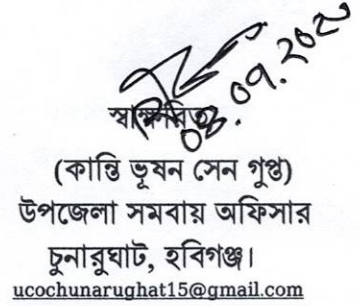 ০৪.০৭.২০২০
স্বাক্ষরিত
(কান্তি ভূষন সেন গুপ্ত)
উপজেলা সমবায় অফিসার
চুনারুঘাট, হবিগঞ্জ।
ucochunarughat15@gmail.com